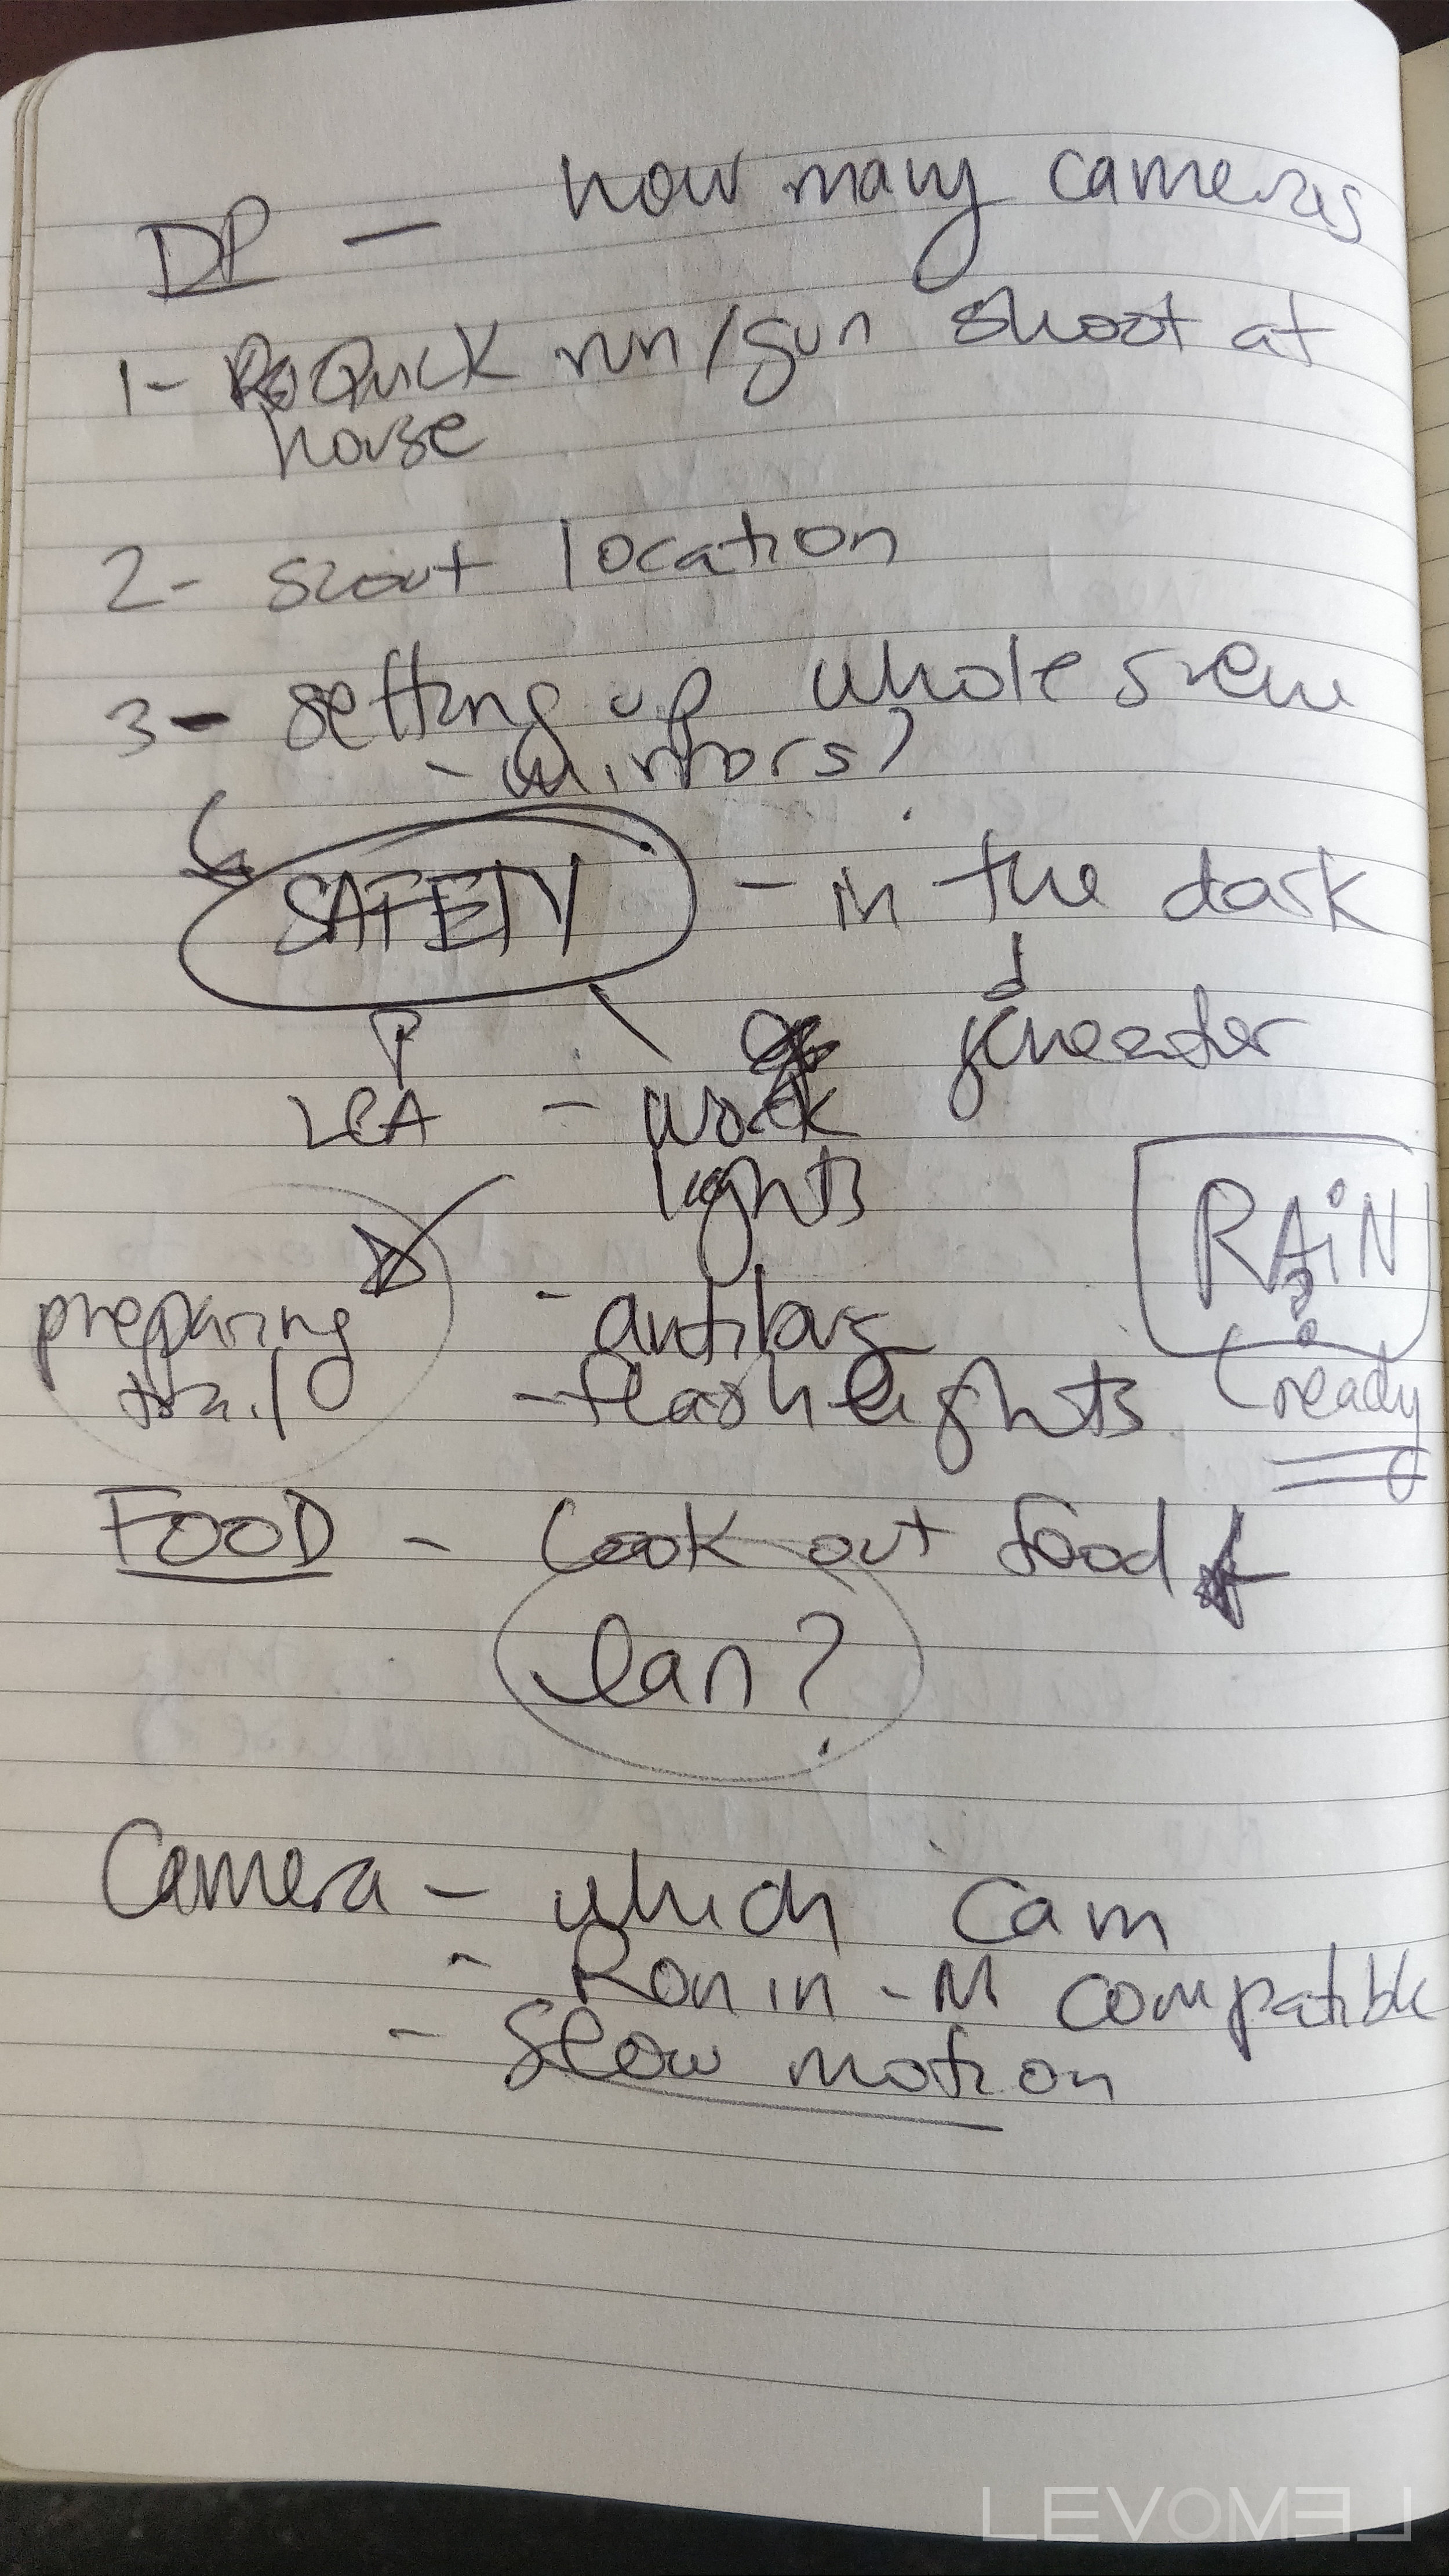 DP — how many cameras
1- Quick run/gun shoot at
house
2- scout location
3- setting up whole
- mirrors?
SAFETY - in the dark
work
lights
- 
preparing
trail
RAiN
?
ready
- antibug
- flashlights
FOOD - look out food
Ian?
Camera - which cam
- Ronin-M compatible
- Slow motion
LEVOMEL